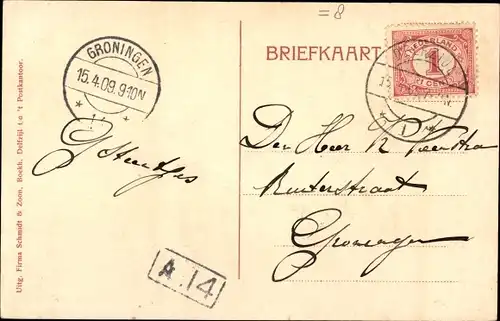 =8
BRIEFKAART
NEDERLAND
1
CENT
GRONINGEN
15.4.09.9-10N
Den Heer R Veenstra
Ruiterstraat
Groningen
A.14
Uitg. Firma Schmidt & Zoon, Boekh. Delfzijl t.o 't Postkantoor.